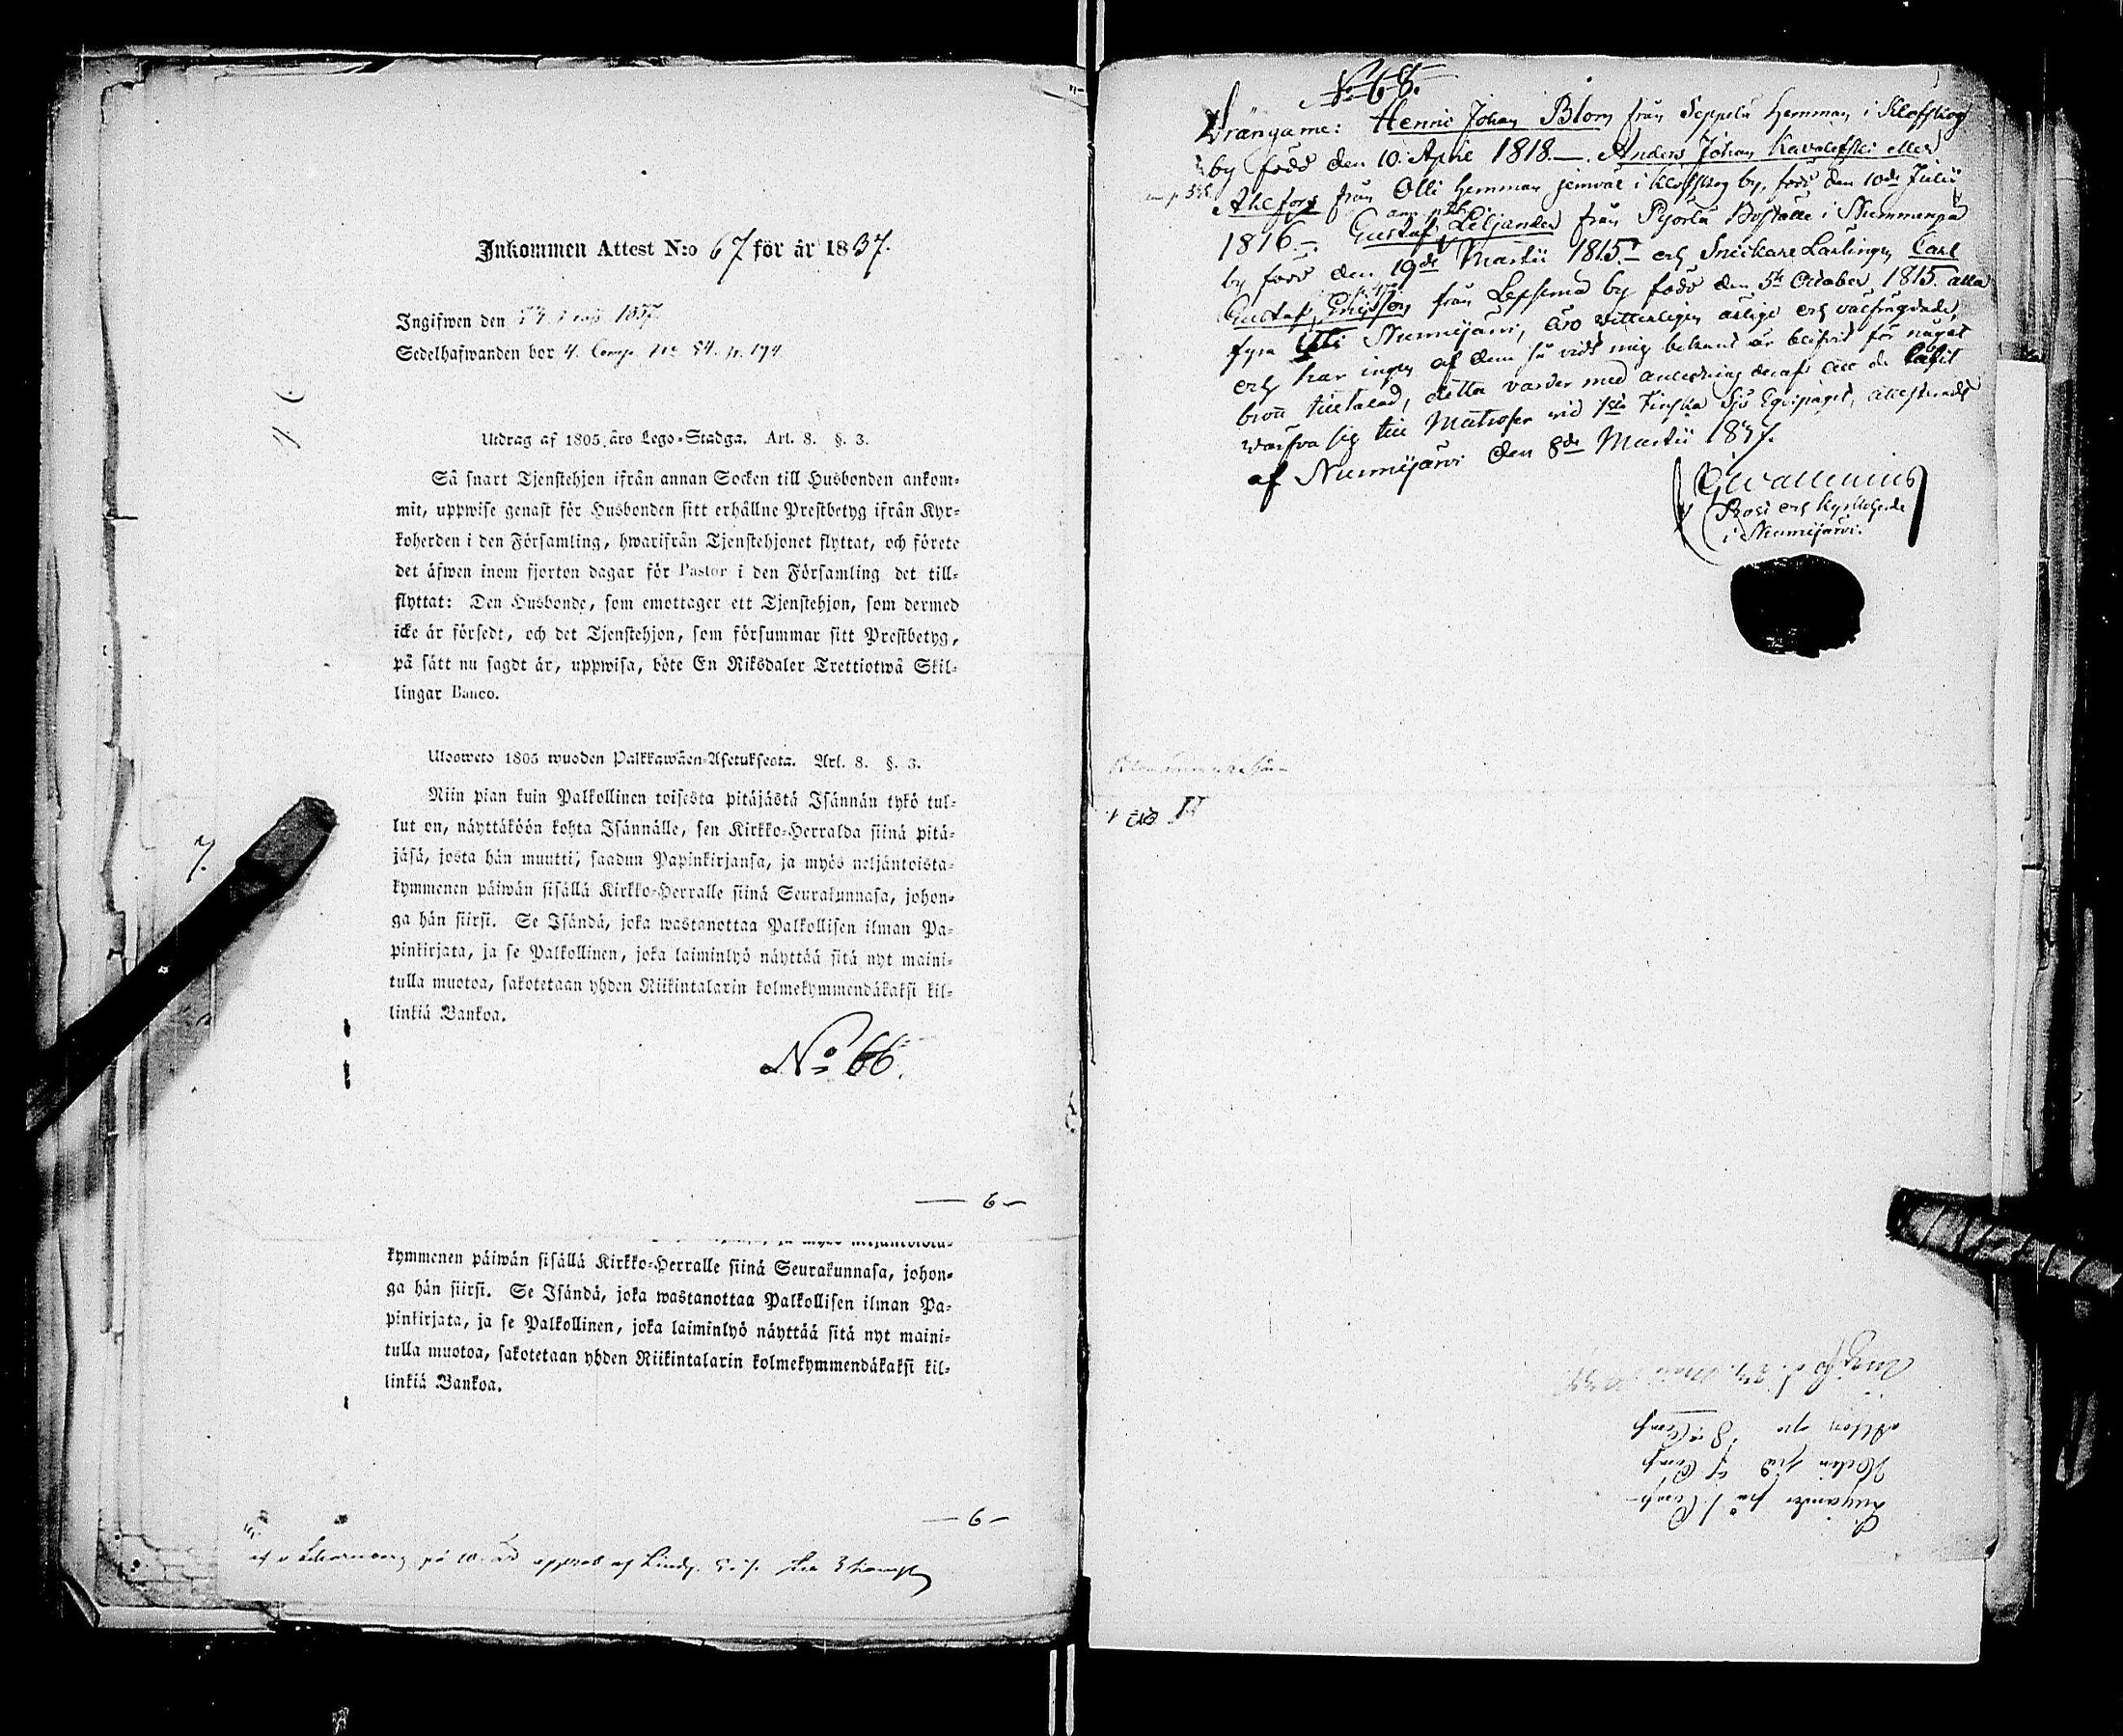 Inkommen Attest N:o 67 för år 1837.
Ingifwen den
Sedelhafwanden bor 4. Comp. No 54. p. 194
Utdrag af 1805 års Lego-Stadga. Art. 8. §. 3.
Så snart Tjenstehjon ifrån annan Socken till Husbonden ankom-
mit, uppwise genast för Husbonden sitt erhållne Prestbetyg ifrån Kyr-
koherden i den Församling, hwarifrån Tjenstehjonet flyttat, och förete
det äfwen inom fjorton dagar för Pastor i den Församling det till-
flyttat: Den Husbonde, som emottager ett Tjenstehjon, som dermed
icke är försedt, och det Tjenstehjon, som försummar sitt Prestbetyg,
på sätt nu sagdt är, uppwisa, böte En Riksdaler Trettiotwå Skil-
lingar Banco.
Ulosweto 1805 wuoden Palkkawäen-Asetuksesta. Art. 8. §. 3.
Niin pian kuin Palkollinen toisesta pitäjästä Isännän tykö tul-
lut on, näyttäköön kohta Isännälle, sen Kirkko-Herralda siinä pitä-
jäsä, josta hän muutti, saadun Papinkirjansa, ja myös neljäntoista-
kymmenen päiwän sisällä Kirkko-Herralle siinä Seurakunnasa, johon-
ga hän siirsi. Se Isändä, joka wastanottaa Palkollisen ilman Pa-
pinkirjata, ja se Palkollinen, joka laiminlyö näyttää sitä nyt maini-
tulla muotoa, sakotetaan yhden Riikintalarin kolmekymmendäkaksi kil-
linkiä Bankoa.
7.
No 66.
— 6 —
kymmenen päiwän sisällä Kirkko-Herralle siinä Seurakunnasa, johon-
ga hän siirsi. Se Isändä, joka wastanottaa Palkollisen ilman Pa-
pinkirjata, ja se Palkollinen, joka laiminlyö näyttää sitä nyt maini-
tulla muotoa, sakotetaan yhden Riikintalarin kolmekymmendäkaksi kil-
linkiä Bankoa.
— 6 —
No 65.
Drängarne: Henric Johan Blom från Seppelä Hemman i Klofskog
by född den 10. April 1818. —. Anders Johan Kavaleffski eller
Ahlfors från Olli Hemman jemväl i Klofskog by, född den 10de Julii
1816. —. Gustaf Liljander från Pyörlä Boställe i Nummenpä
by född den 19de Martii 1815. — och Snickare Lärlingen Carl
Gustaf Ericsson från Lepsemä by född den 5te October 1815. alla
fyra uti Nurmijärvi, äro vitterligen ärlige och välfrägdade,
och har ingen af dem så vidt mig bekant är blifvit för något
brott tilltalad, detta varder med anledning deraf att de låtit
värfva sig till Matroser vid 1sta Finska Sjö Equipaget, attesteradt
af Nurmijärvi den 8de Martii 1837.
G Wallenius
Prost och Kyrkoherde
i Nurmijärvi.